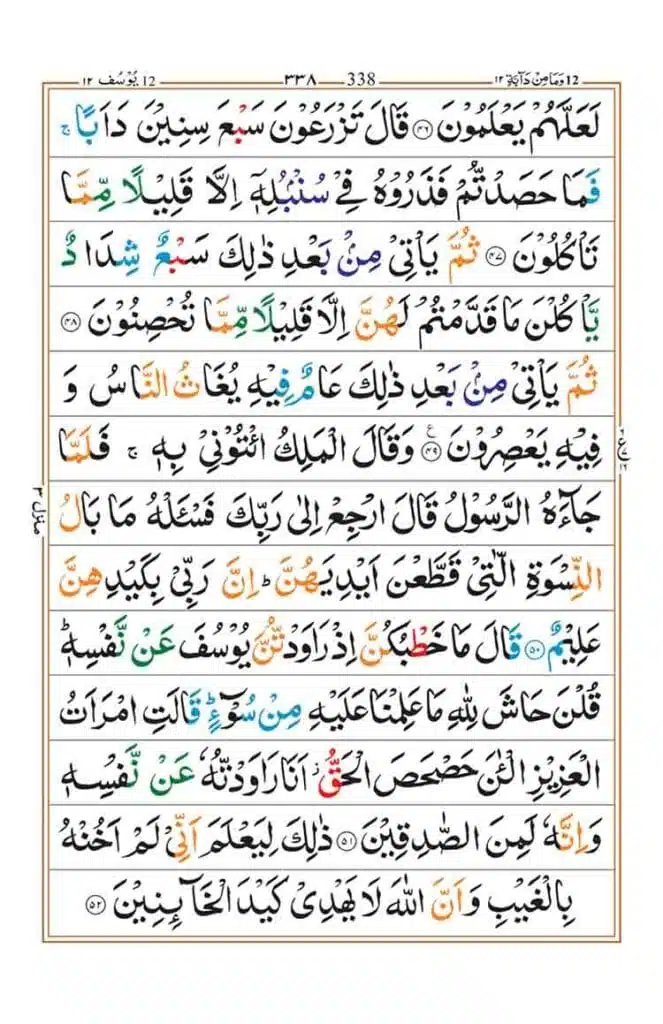 12 وَمَا مِنْ دَآبَّةٍ ١٢ 338 ٣٣٨ 12 يُوْسُف ١٢
لَعَلَّهُمْ يَعْلَمُوْنَ ﴿٤٦﴾ قَالَ تَزْرَعُوْنَ سَبْعَ سِنِيْنَ دَاَبًا ۚ
فَمَا حَصَدْتُّمْ فَذَرُوْهُ فِيْ سُنْۢبُلِهٖٓ اِلَّا قَلِيْلًا مِّمَّا
تَاْكُلُوْنَ ﴿٤٧﴾ ثُمَّ يَاْتِيْ مِنْۢ بَعْدِ ذٰلِكَ سَبْعٌ شِدَادٌ
يَّاْكُلْنَ مَا قَدَّمْتُمْ لَهُنَّ اِلَّا قَلِيْلًا مِّمَّا تُحْصِنُوْنَ ﴿٤٨﴾
ثُمَّ يَاْتِيْ مِنْۢ بَعْدِ ذٰلِكَ عَامٌ فِيْهِ يُغَاثُ النَّاسُ وَ
فِيْهِ يَعْصِرُوْنَ ﴿٤٩﴾ ع وَقَالَ الْمَلِكُ ائْتُوْنِيْ بِهٖ ۚ فَلَمَّا
جَآءَهُ الرَّسُوْلُ قَالَ ارْجِعْ اِلٰى رَبِّكَ فَسْـَٔلْهُ مَا بَالُ
النِّسْوَةِ الّٰتِيْ قَطَّعْنَ اَيْدِيَهُنَّ ؕ اِنَّ رَبِّيْ بِكَيْدِهِنَّ
عَلِيْمٌ ﴿٥٠﴾ قَالَ مَا خَطْبُكُنَّ اِذْ رَاوَدْتُّنَّ يُوْسُفَ عَنْ نَّفْسِهٖ ؕ
قُلْنَ حَاشَ لِلّٰهِ مَا عَلِمْنَا عَلَيْهِ مِنْ سُوْٓءٍ ؕ قَالَتِ امْرَاَتُ
الْعَزِيْزِ الْـٰٔنَ حَصْحَصَ الْحَقُّ ز اَنَا رَاوَدْتُّهٗ عَنْ نَّفْسِهٖ
وَاِنَّهٗ لَمِنَ الصّٰدِقِيْنَ ﴿٥١﴾ ذٰلِكَ لِيَعْلَمَ اَنِّيْ لَمْ اَخُنْهُ
بِالْغَيْبِ وَاَنَّ اللّٰهَ لَا يَهْدِيْ كَيْدَ الْخَآئِنِيْنَ ﴿٥٢﴾
منزل ٣